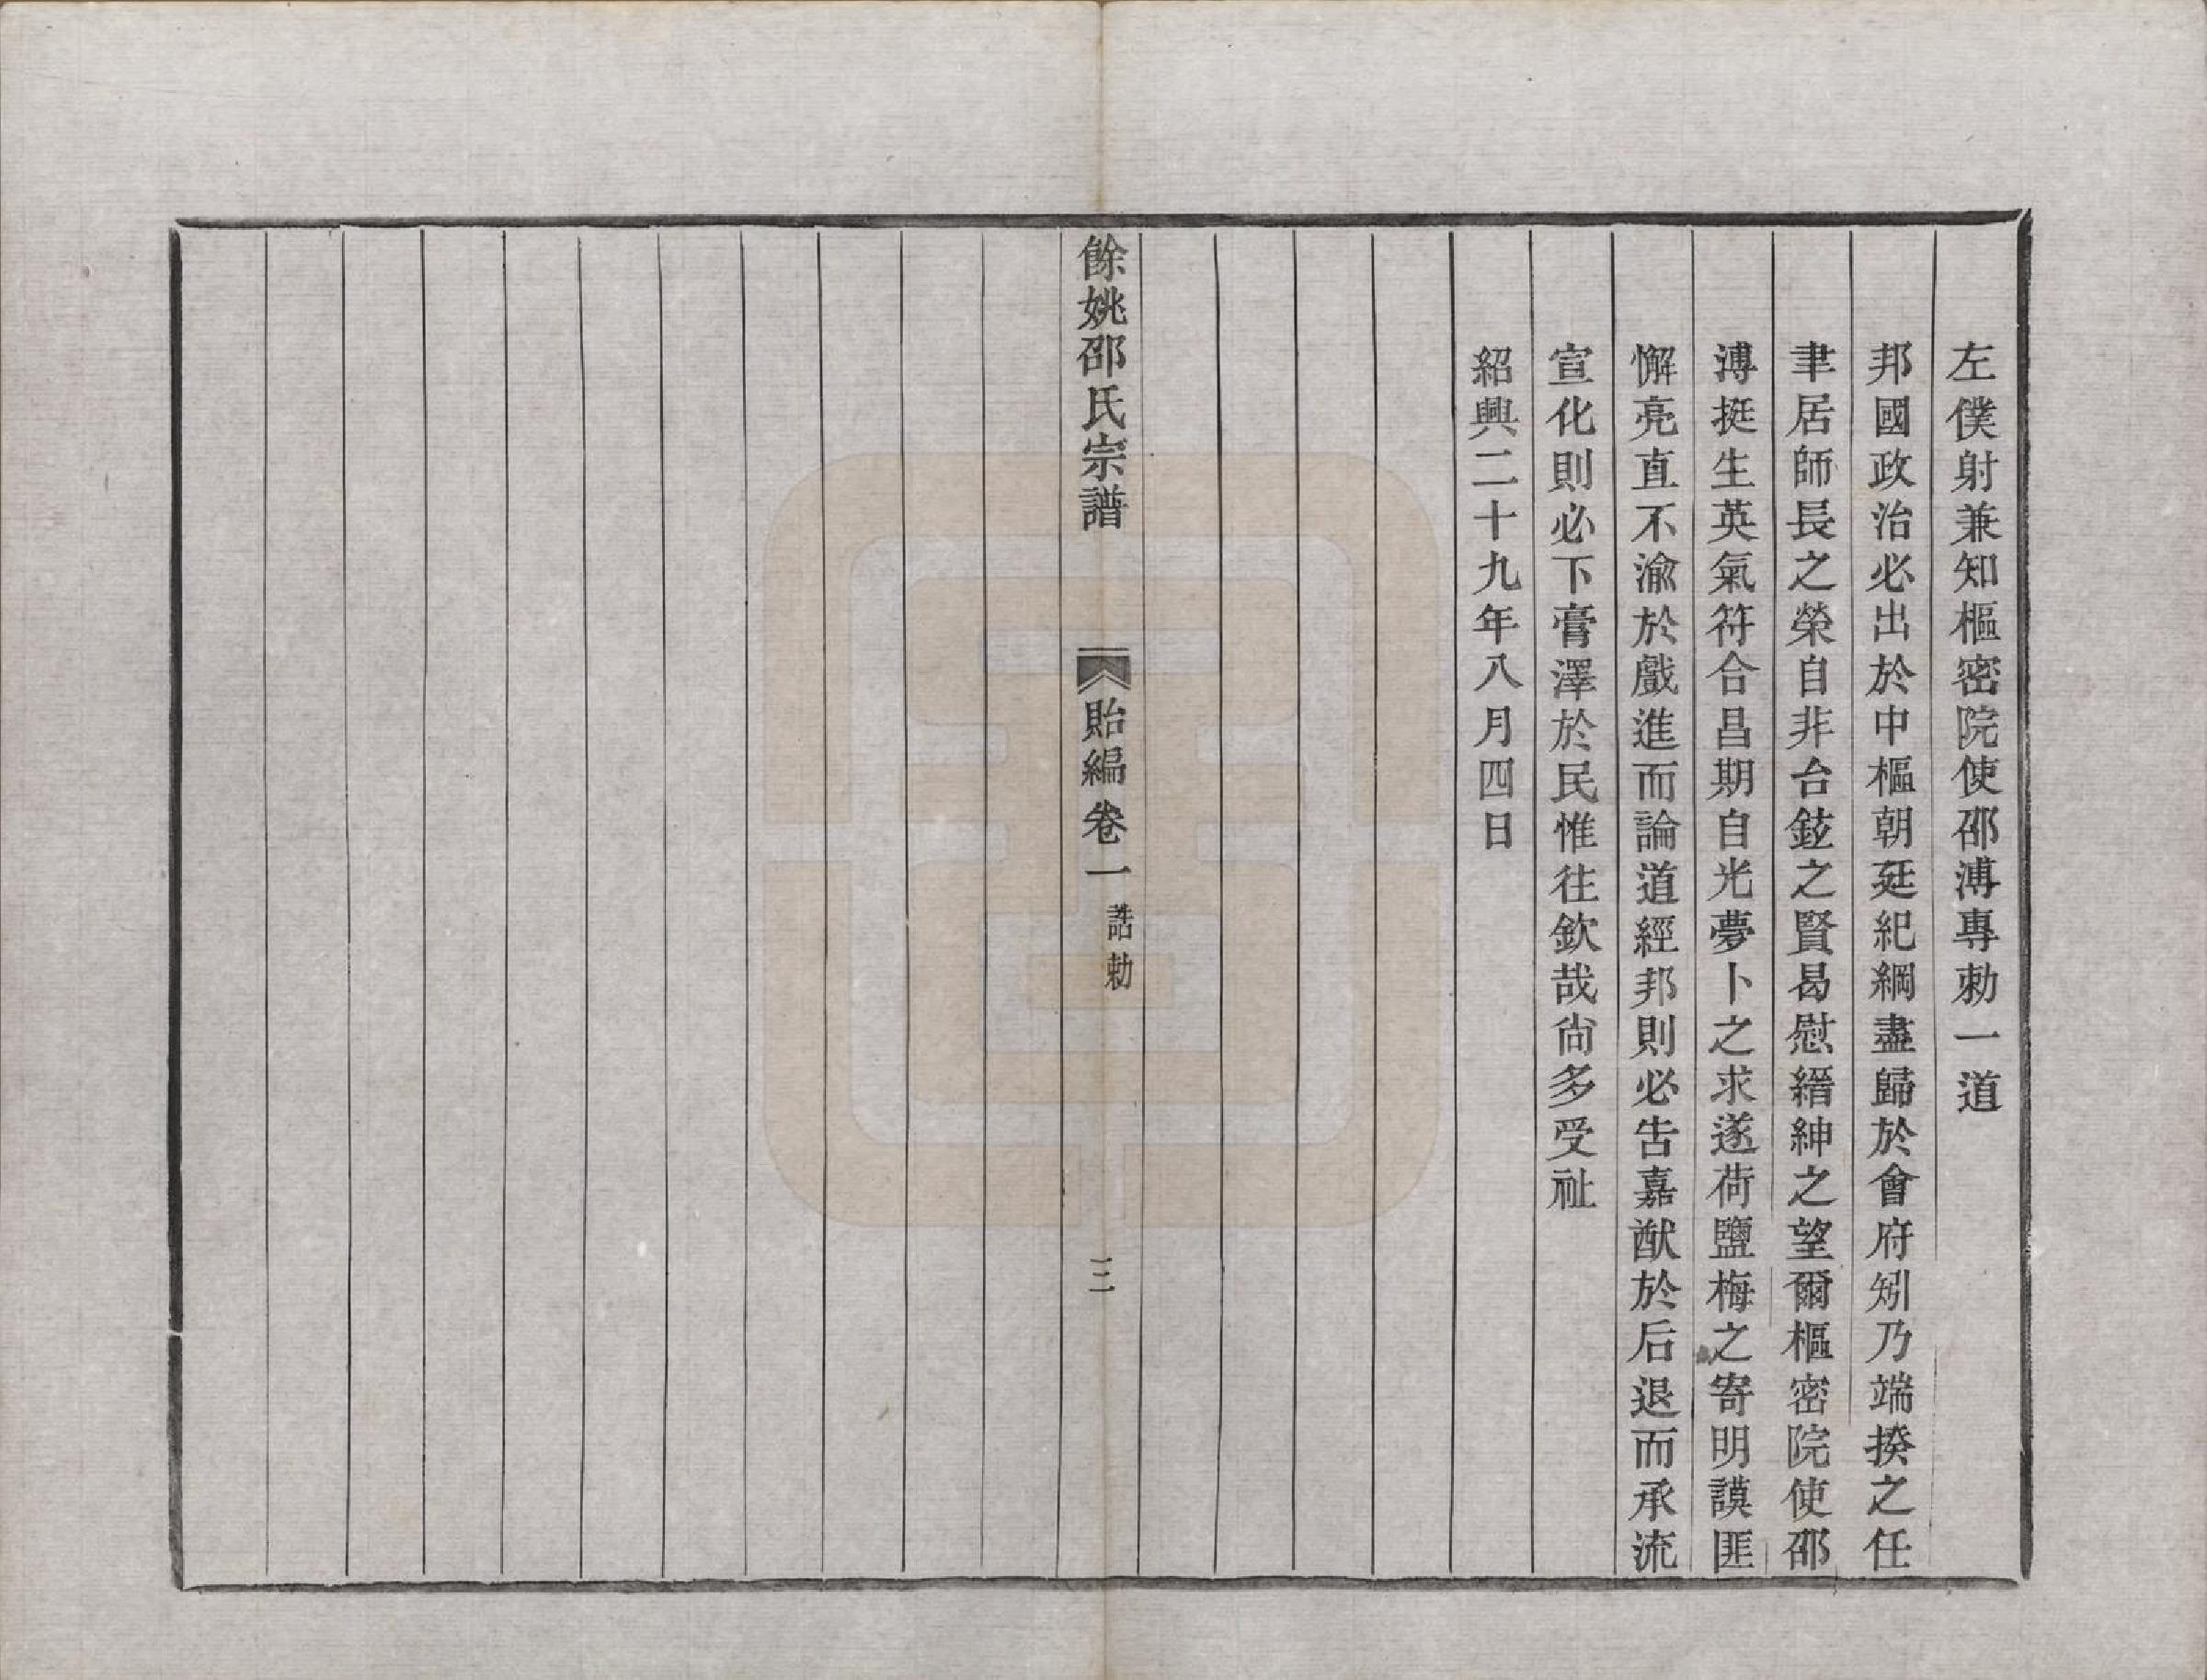 左僕射兼知樞密院使邵溥專勅一道
邦國政治必出於中樞朝廷紀綱盡歸於會府矧乃端揆之任
聿居師長之榮自非台鉉之賢曷慰縉紳之望爾樞密院使邵
溥挺生英氣符合昌期自光夢卜之求遂荷鹽梅之寄明謨匪
懈亮直不渝於戲進而論道經邦則必告嘉猷於后退而承流
宣化則必下膏澤於民惟往欽哉尙多受祉
紹興二十九年八月四日
餘姚邵氏宗譜
貽編卷一 誥勅
三